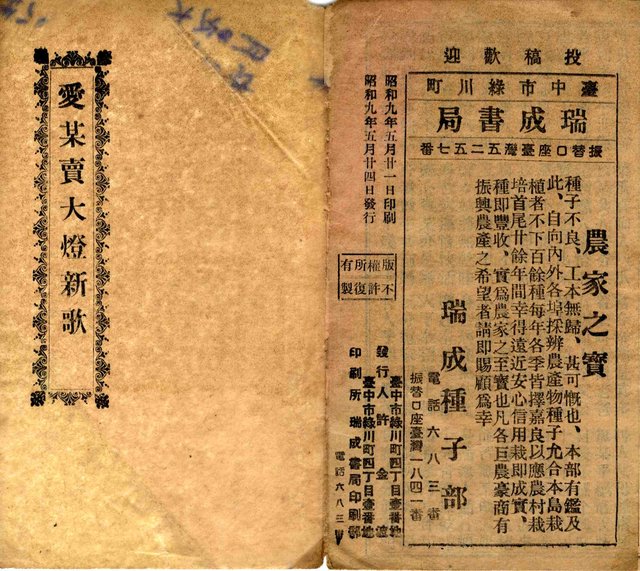 投稿歡迎
臺中市綠川町
瑞成書局
振替口座臺灣五二五七番
農家之寶
種子不良、工本無歸、甚可慨也、本部有鑑及
此、自向內外各埠採辦農產物種子允合本島栽
植者不下百餘種每年各季皆擇嘉良以應農村栽
培首尾廿餘年間幸得遠近安心信用栽即成實、
種即豐收、實爲農家之至寶也凡各巨農豪商有
振興農產之希望者請即賜顧爲幸
瑞成種子部
電話六八三番
振替口座臺灣一八四二番
昭和九年五月廿一日印刷
昭和九年五月廿四日發行
版權所有
不許復製
臺中市綠川町四丁目臺番地
發行人許金
臺中市綠川町四丁目臺番地
印刷所瑞成書局印刷部
電話六八三
愛某賣大燈新歌